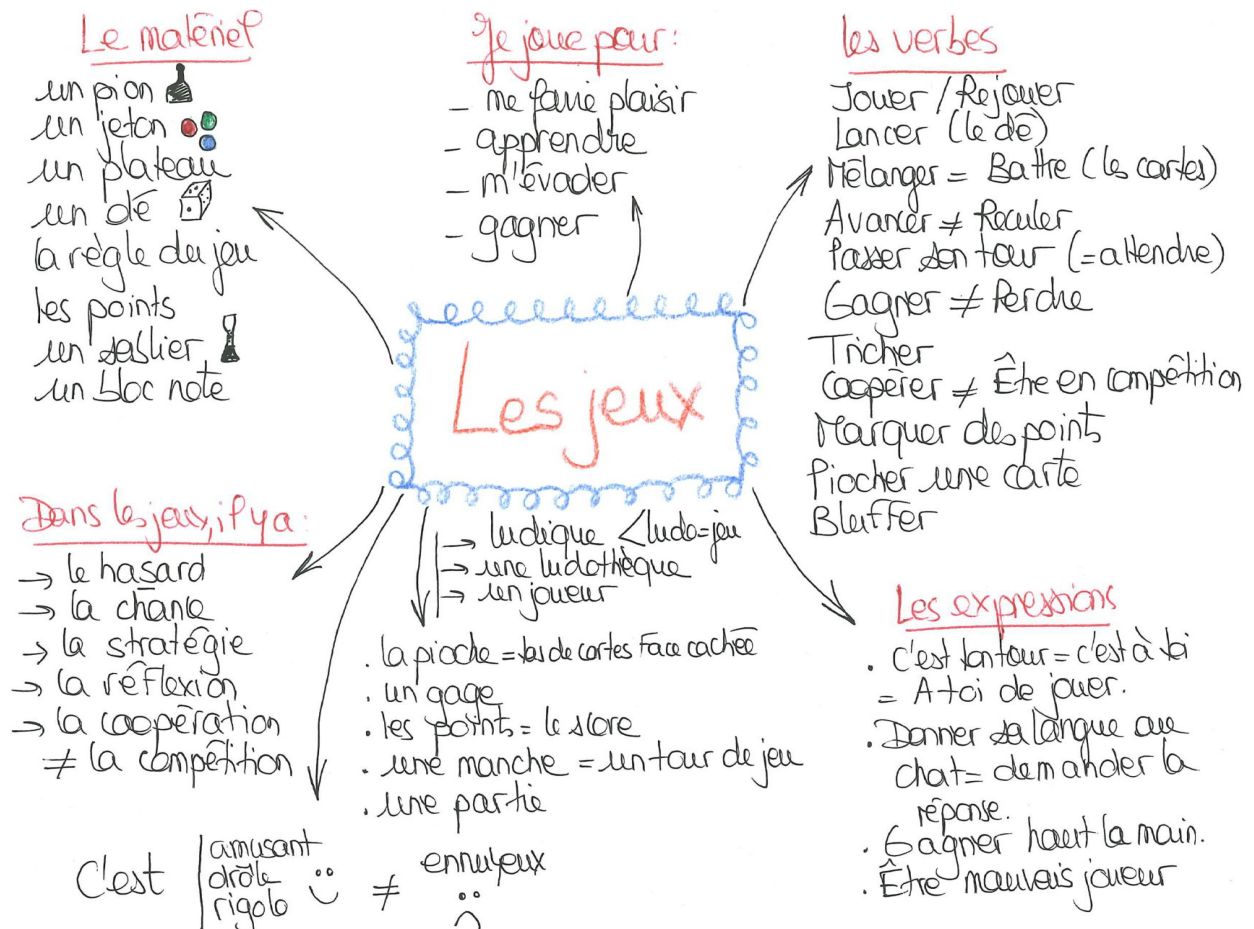 Le matériel
un pion
un jeton
un plateau
un dé
la règle du jeu
les points
un sablier
un bloc note
Je joue pour :
- me faire plaisir
- apprendre
- m'évader
- gagner
les verbes
Jouer / Rejouer
Lancer (le dé)
Mélanger = Battre (les cartes)
Avancer ≠ Reculer
Passer son tour (= attendre)
Gagner ≠ Perdre
Tricher
Coopérer ≠ Être en compétition
Marquer des points
Piocher une carte
Bluffer
Les jeux
Dans les jeux, il y a :
→ le hasard
→ la chance
→ la stratégie
→ la réflexion
→ la coopération
≠ la compétition
→ ludique < ludo = jeu
→ une ludothèque
→ un joueur
. la pioche = tas de cartes face cachée
. un gage
. les point = le score
. une manche = un tour de jeu
. une partie
C'est
amusant
drôle
rigolo
≠
ennuyeux
Les expressions
. c'est ton tour = c'est à toi
= A toi de jouer.
. Donner sa langue au
chat = demander la
réponse.
. Gagner haut la main.
. Être mauvais joueur